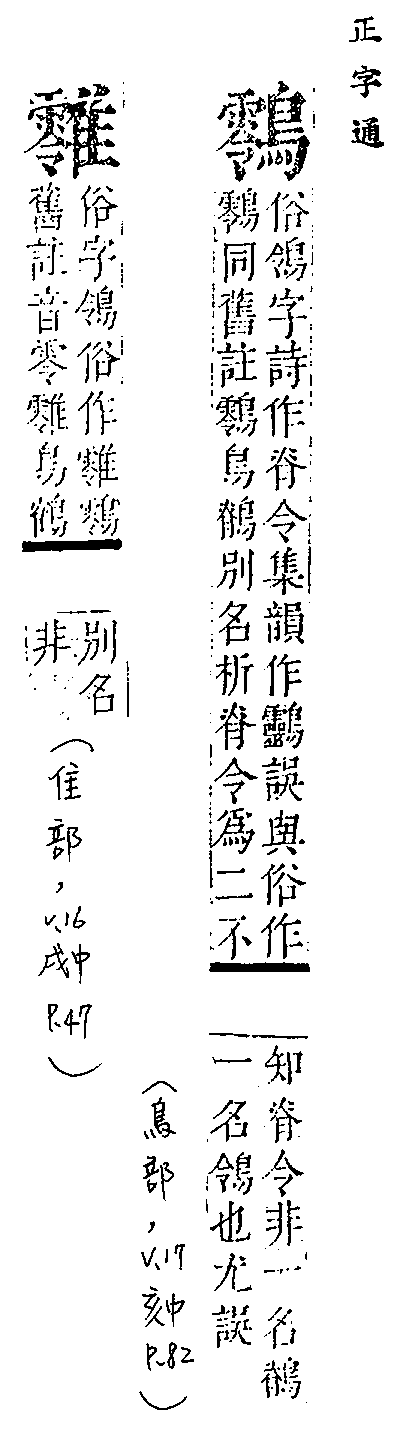 正字通
䴇
俗鴒字詩作脊令集韻作誤與俗作
䴇同舊註䴇鳥鶺別名析脊令爲二不
知脊令非一名鶺
一名鴒也尤誤
(鳥部，v.17 亥中 P.82)
䨩
俗字鴒俗作䨩䴇
舊註音零䨩鳥鶺
別名
非
(隹部，v.16 戌中 P.47)